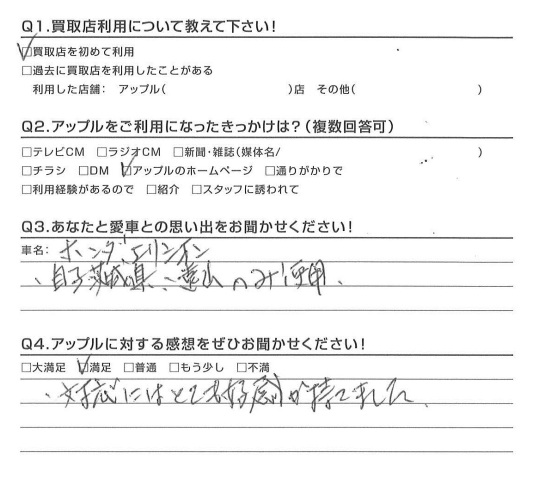 Q1.買取店利用について教えて下さい!
☑買取店を初めて利用
□過去に買取店を利用したことがある
利用した店舗: アップル( )店 その他( )
Q2.アップルをご利用になったきっかけは?(複数回答可)
□テレビCM □ラジオCM □新聞・雑誌(媒体名/ )
□チラシ □DM ☑アップルのホームページ □通りがかりで
□利用経験があるので □紹介 □スタッフに誘われて
Q3.あなたと愛車との思い出をお聞かせください!
車名: ホンダ
のみ使用、
Q4.アップルに対する感想をぜひお聞かせください!
□大満足 ☑満足 □普通 □もう少し □不満
・対応にはとても好感が持てました、